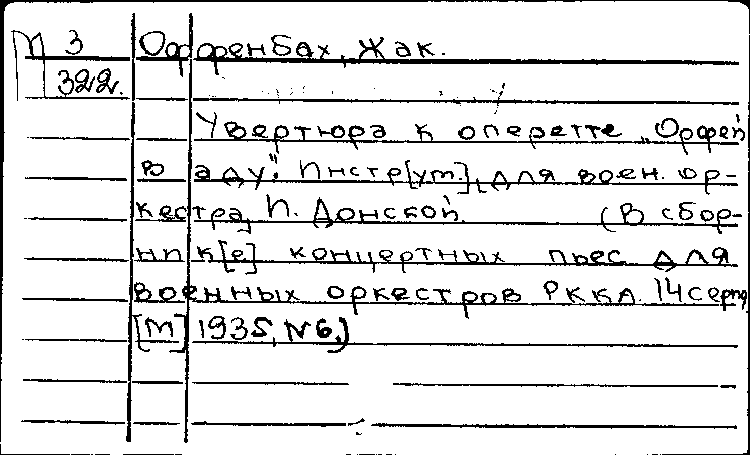 П 3 Оффенбах, Жак.
322.
Увертюра к оперетте „Орфей
в аду". Инстр[ум.] для воен. ор-
кестра, И. Донской. (В сбор-
ник[е] концертных пьес для
военных оркестров РККА. 14 серия
[М] 1935, №6.)